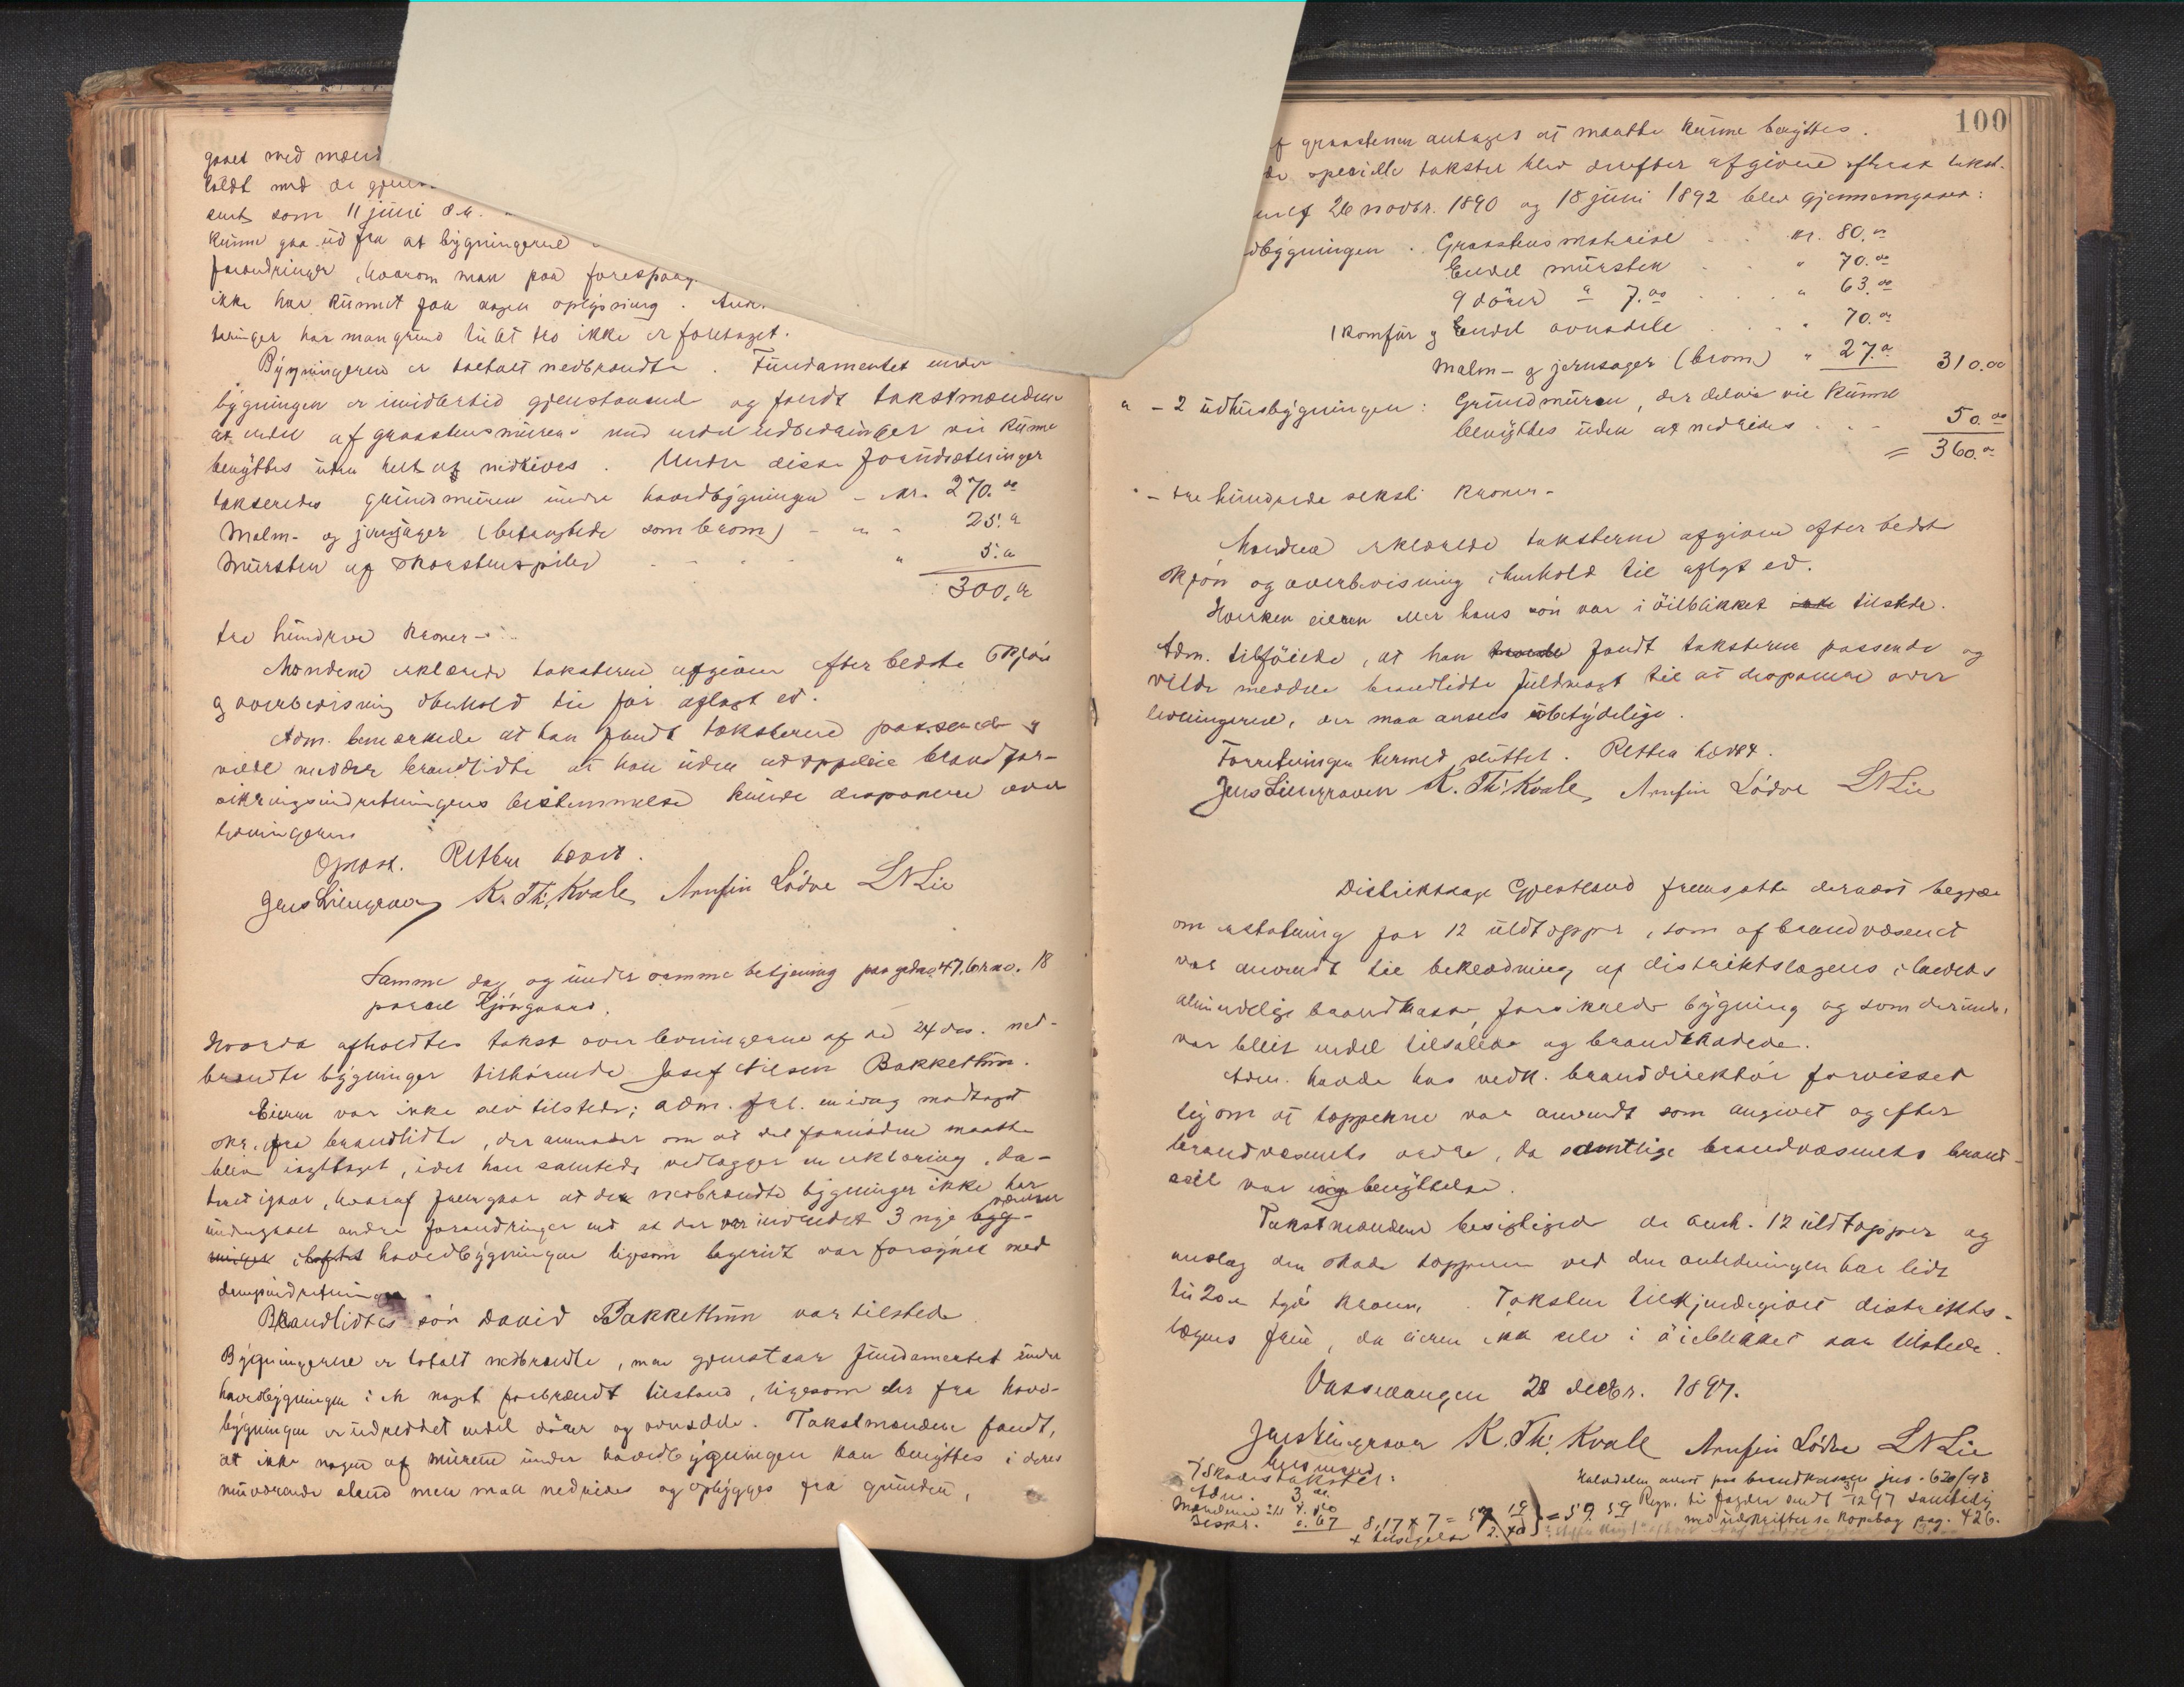 gaaet med mænd
holdt med de
som 11 juni d.a.
kunne gaa ud fra at bygningerne
forandringer, hvorom man paa forespørg
ikke har kunnet faa nogen oplysning.
har man grund til at tro ikke er foretaget.
Bygningerne er totalt nedbrændte. Fundamentet under
bygningen er imidlertid gjenstaaende og fandt takstmændene
at endel af graastensmuren med endel udbedringer vil kunne
benyttes uden helt at nedrives. Under disse forudsætninger
takseredes grundmuren under hovedbygningen - kr. 270.00
Malm- og jernsager (betragtede som brom) - " - 25."
Mursten af skorstenspiber " 5."
300."
tre hundrede kroner -
Mændene erklærede taksterne afgivne efter bedste skjøn
og overbevisning i henhold til før aflagt ed.
Adm. bemærkede at han fandt taksterne passende og
vilde meddele brandlidte at han uden at oppebie brandfor-
sikringsindretningens bestemmelse kunde disponere over
levningerne
Oplæst. Retten hævet.
Jens Liengraven K. Th. Kvale Arnfin Lødve LNLie
Samme dag og under samme betjening paa gaards 47, brno. 18
parcel Kjøngaard.
Hvorda afholdtes takst over levningerne af de 24 ds. ned-
brændte bygninger tilhørende Josef Nilsen Bakkethun.
Eieren var ikke selv tilstede; adm. frl. en idag modtaget
skr. fra brandlidte, der anmoder om at det fornødne maatte
blive iagttaget, idet han samtidig vedlægger en erklæring, da-
teret igaar, hvoraf fremgaar at de nedbrændte bygninger ikke har
undergaaet andre forandringer end at der var indredet 3 nye værelser
i hovedbygningen ligesom bageriet var forsynet med
dampindretninger
Brandlidtes søn David Bakkethun var tilstede.
Bygningerne er totalt nedbrændte, men gjenstaar fundamentet under
hovedbygningen i et noget forbrændt tilstand, ligesom der fra hoved-
bygningen er udreddet endel dører og ovnsdele. Takstmændene fandt,
at ikke nogen af murene under hovedbygningen kan benyttes i deres
nuværende stand men maa nedrives og opbygges fra grunden,
100
af graastenen antages at maatte kunne benyttes.
de specielle takster blev derefter afgivne efterat takst.
26 novbr. 1890 og 18 juni 1892 blev gjennemgaaet:
dbygningen. Graastensmateriel kr. 80."
Endel mursten " 70.00
9 dører a 7.00 " 63.00
1 komfur og Endel ovnsdele " 70."
Malm- og jernsager (brom) " 27." 310.00
" - 2 udhusbygningen: Grundmuren, der delvis vil kunne
benyttes uden at nedrives 50.00
= 360."
- tre hundrede seksti kroner -
Mændene erklærede taksterne afgivne efter bedste
skjøn og overbevisning i henhold til aflagt ed.
Hverken eieren eller hans søn var i øieblikket tilstede.
Adm. tilføiede, at han fandt taksterne passende og
vilde meddele brandlidte fuldmagt til at disponere over
levningerne, der maa ansees ubetydelige.
Forretningen hermed sluttet. Retten hævet.
Jens Liengraven K. Th. Kvale Arnfin Lødve LNLie
Distriktslæge Gjestland fremsatte dernæst begjæ
om erstatning for 12 uldtæpper, som af brandvæsenet
var anvendt til beklædning af distriktslægens i landets
almindelige brandkasse forsikrede bygning og som derunder
var blevet endel tilsølede og brandskadede.
Adm. havde hos vedk. branddirektør forvisset
sig om at tæpperne var anvendt som angivet og efter
brandvæsenets ordre, da samtlige brandvæsenets brand-
seil var i benyttelse.
Takstmændene besigtiget de anm. 12 uldtæpper og
anslog den skade tæpperne ved den anledningen har lidt
til 20." tyve kroner. Taksten tilkjendegivet distrikts-
lægens frue, da eieren ikke selv i øieblikket var tilstede.
Vossevangen 28 decbr. 1897.
Jens Liengraven K. Th. Kvale Arnfin Lødve LNLie
7 Skadestakster:
Adm. 3
Mændene 4.
0.67 8,17 x 7 = 57 19 } = 59 59
+ tilsigelse 2.40
Halvdelen anvist paa brandkassen jno. 620/98
Regn. til fogden sendt 31/12 97 samtidig
med udskrifter se Kopibog pag. 426.